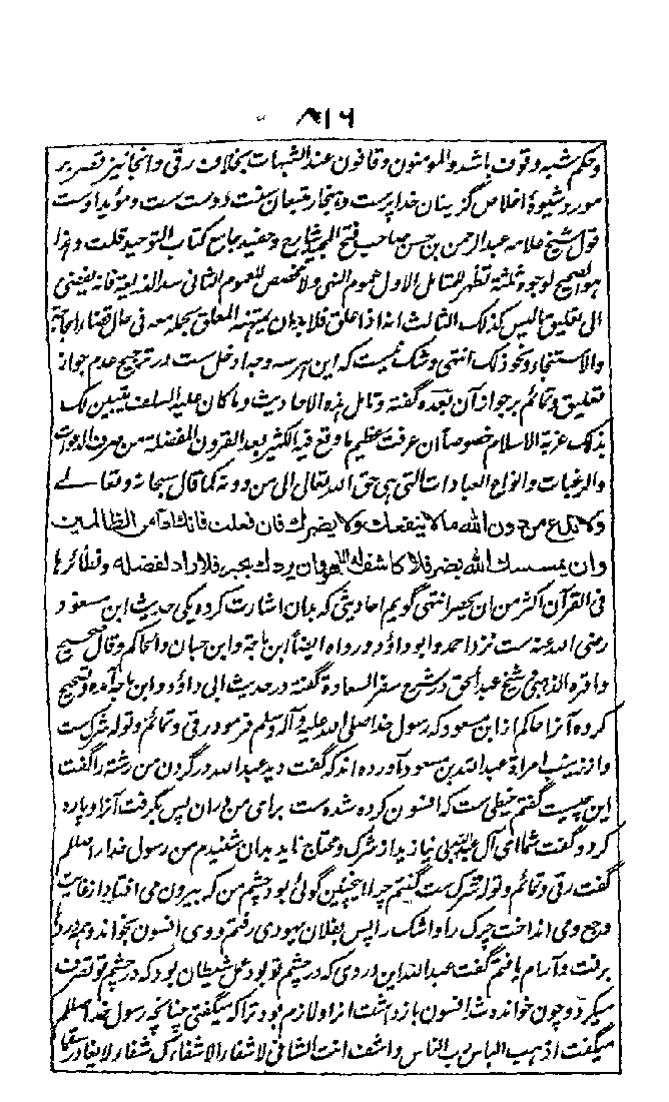 ٨١٦
و حکم شبه و قوف باشد والمومنون وقافون عند الشبهات بخلاف رقی و انجا نیز تقریر
مورد شیوهٔ اخلاص گزینان خدا پرست و هنجار متبعان سنت دوست ست و مؤید اوست
قول شیخ علامه عبد الرحمن بن حسن صاحب فتح المجید شارح و حفید جامع کتاب التوحید قلت و هذا
هو الصحیح لوجوه ثلثة تظهر للمتامل الاول عموم النهی ولا مخصص للعموم الثانی سد الذریعة فانه یفضی
الی تعلیق ما لیس کذلک الثالث انه اذا علق فلا بد ان یمتهنه المعلق بحمله معه فی حال قضاء الحاجة
والاستنجاء و نحو ذلک انتهی و شک نیست که این هر سه وجه ادخل ست در ترجیح عدم جواز
تعلیق و تمائم بر جواز آن بعده گفته و تامل هذه الاحادیث وما کان علیه السلف یتبین لک
بذلک غربة الاسلام خصوصاً ان عرفت عظیم ما وقع فیه الکثیر بعد القرون المفضلة من صرف الدعوات
والرغبات وانواع العبادات التی هی حق الله تعالی الی من دونه کما قال سبحانه وتعالے
ولا تدع من دون الله ما لا ینفعك ولا یضرك فان فعلت فانك اذا من الظالمین
وان یمسسك الله بضر فلا کاشف له الا هو وان یردك بخیر فلا راد لفضله و نظائرها
فی القرآن اکثر من ان یحصر انتهی گویم احادیثی که بدان اشارت کرده یکی حدیث ابن مسعود
رضی الله عنه ست نزد احمد و ابو داؤد و رواه ایضاً ابن ماجة وابن حبان والحاکم وقال صحیح
واقره الذهبی شیخ عبد الحق در شرح سفر السعادة گفته در حدیث ابی داؤد و ابن ماجه آمده و تصحیح
کرده آنرا حاکم از ابن مسعود که رسول خدا صلی الله علیه و آله وسلم فرمود رقی و تمائم و توله شرک ست
و از زینب امرأة عبد الله بن مسعود آورده اند که گفت دید عبد الله در گردن من رشته را گفت
این چیست گفتم خیطی ست که افسون کرده شده ست برای من دران پس بگرفت آنرا و پاره
کرد و گفت شما ای آل عبد الله بی نیازید از شرک و محتاج نه اید بدان شنیدم من رسول خدا را صلعم
گفت رقی و تمائم و توله شرک ست گفتم چرا اینچنین گوئی بود چشم من که بیرون می افتاد از غایت
وجع و می انداخت چرک را و اشک را پس بفلان یهودی رفتم و وی افسون بخواند و هم درد
برفت و آرام یافتم گفت عبد الله این دردی که در چشم تو بود عمل شیطان بود که در چشم تو تصرف
میکرد و چون خوانده شد افسون باز داشت آنرا و لازم بود ترا که میگفتی چنانچه رسول خدا صلعم
میگفت اذهب الباس رب الناس واشف انت الشافی لا شفاء الا شفاءک شفاء لا یغادر سقما